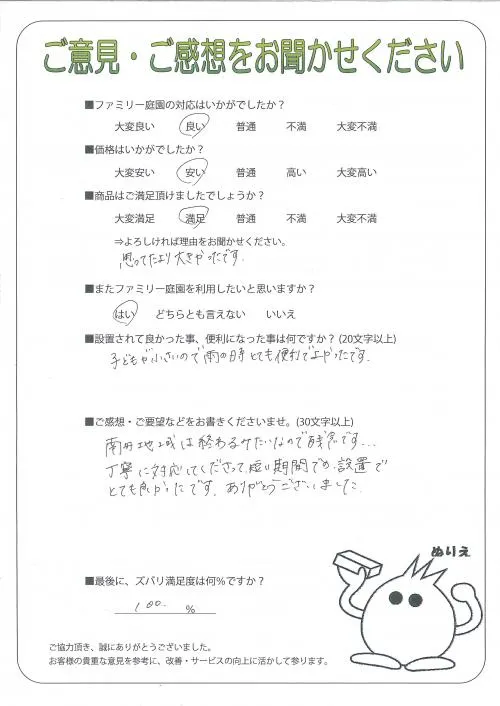 ご意見・ご感想をお聞かせください
■ファミリー庭園の対応はいかがでしたか？
大変良い 良い 普通 不満 大変不満
■価格はいかがでしたか？
大変安い 安い 普通 高い 大変高い
■商品はご満足頂けましたでしょうか？
大変満足 満足 普通 不満 大変不満
⇒よろしければ理由をお聞かせください。
思ってたより大きかったです。
■またファミリー庭園を利用したいと思いますか？
はい どちらとも言えない いいえ
■設置されて良かった事、便利になった事は何ですか？(20文字以上)
子どもが小さいので雨の日時とても便利でよかったです。
■ご感想・ご要望などをお書きくださいませ。(30文字以上)
南丹地域は終わるみたいなので残念です...
丁寧に対応してくださって、短い期間での設置で
とても良かったです。ありがとうございました
ぬりえ
■最後に、ズバリ満足度は何％ですか？
100 %
ご協力頂き、誠にありがとうございました。
お客様の貴重な意見を参考に、改善・サービスの向上に活かして参ります。